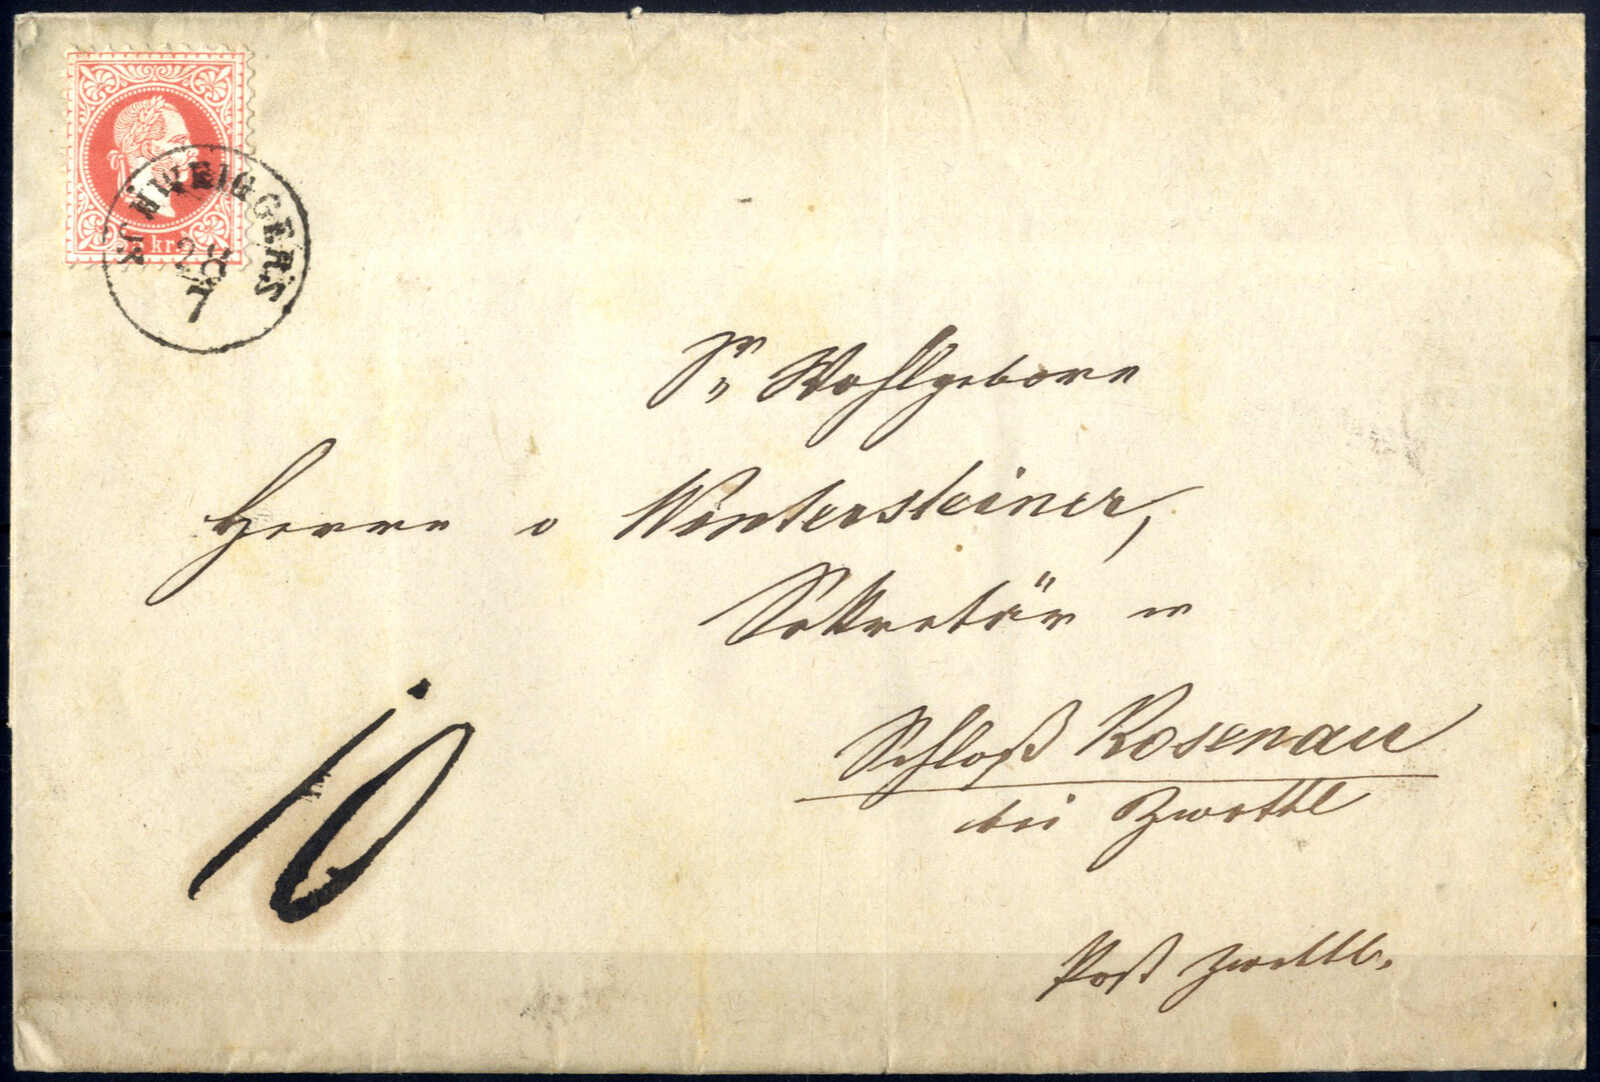 5 kr
SCHWEIGGERS
28
7
Sr Wohlgeborn
Herrn v Wintersteiner,
Sekretär in
Schloß Rosenau
bei Zwettl
Post Zwettl.
10